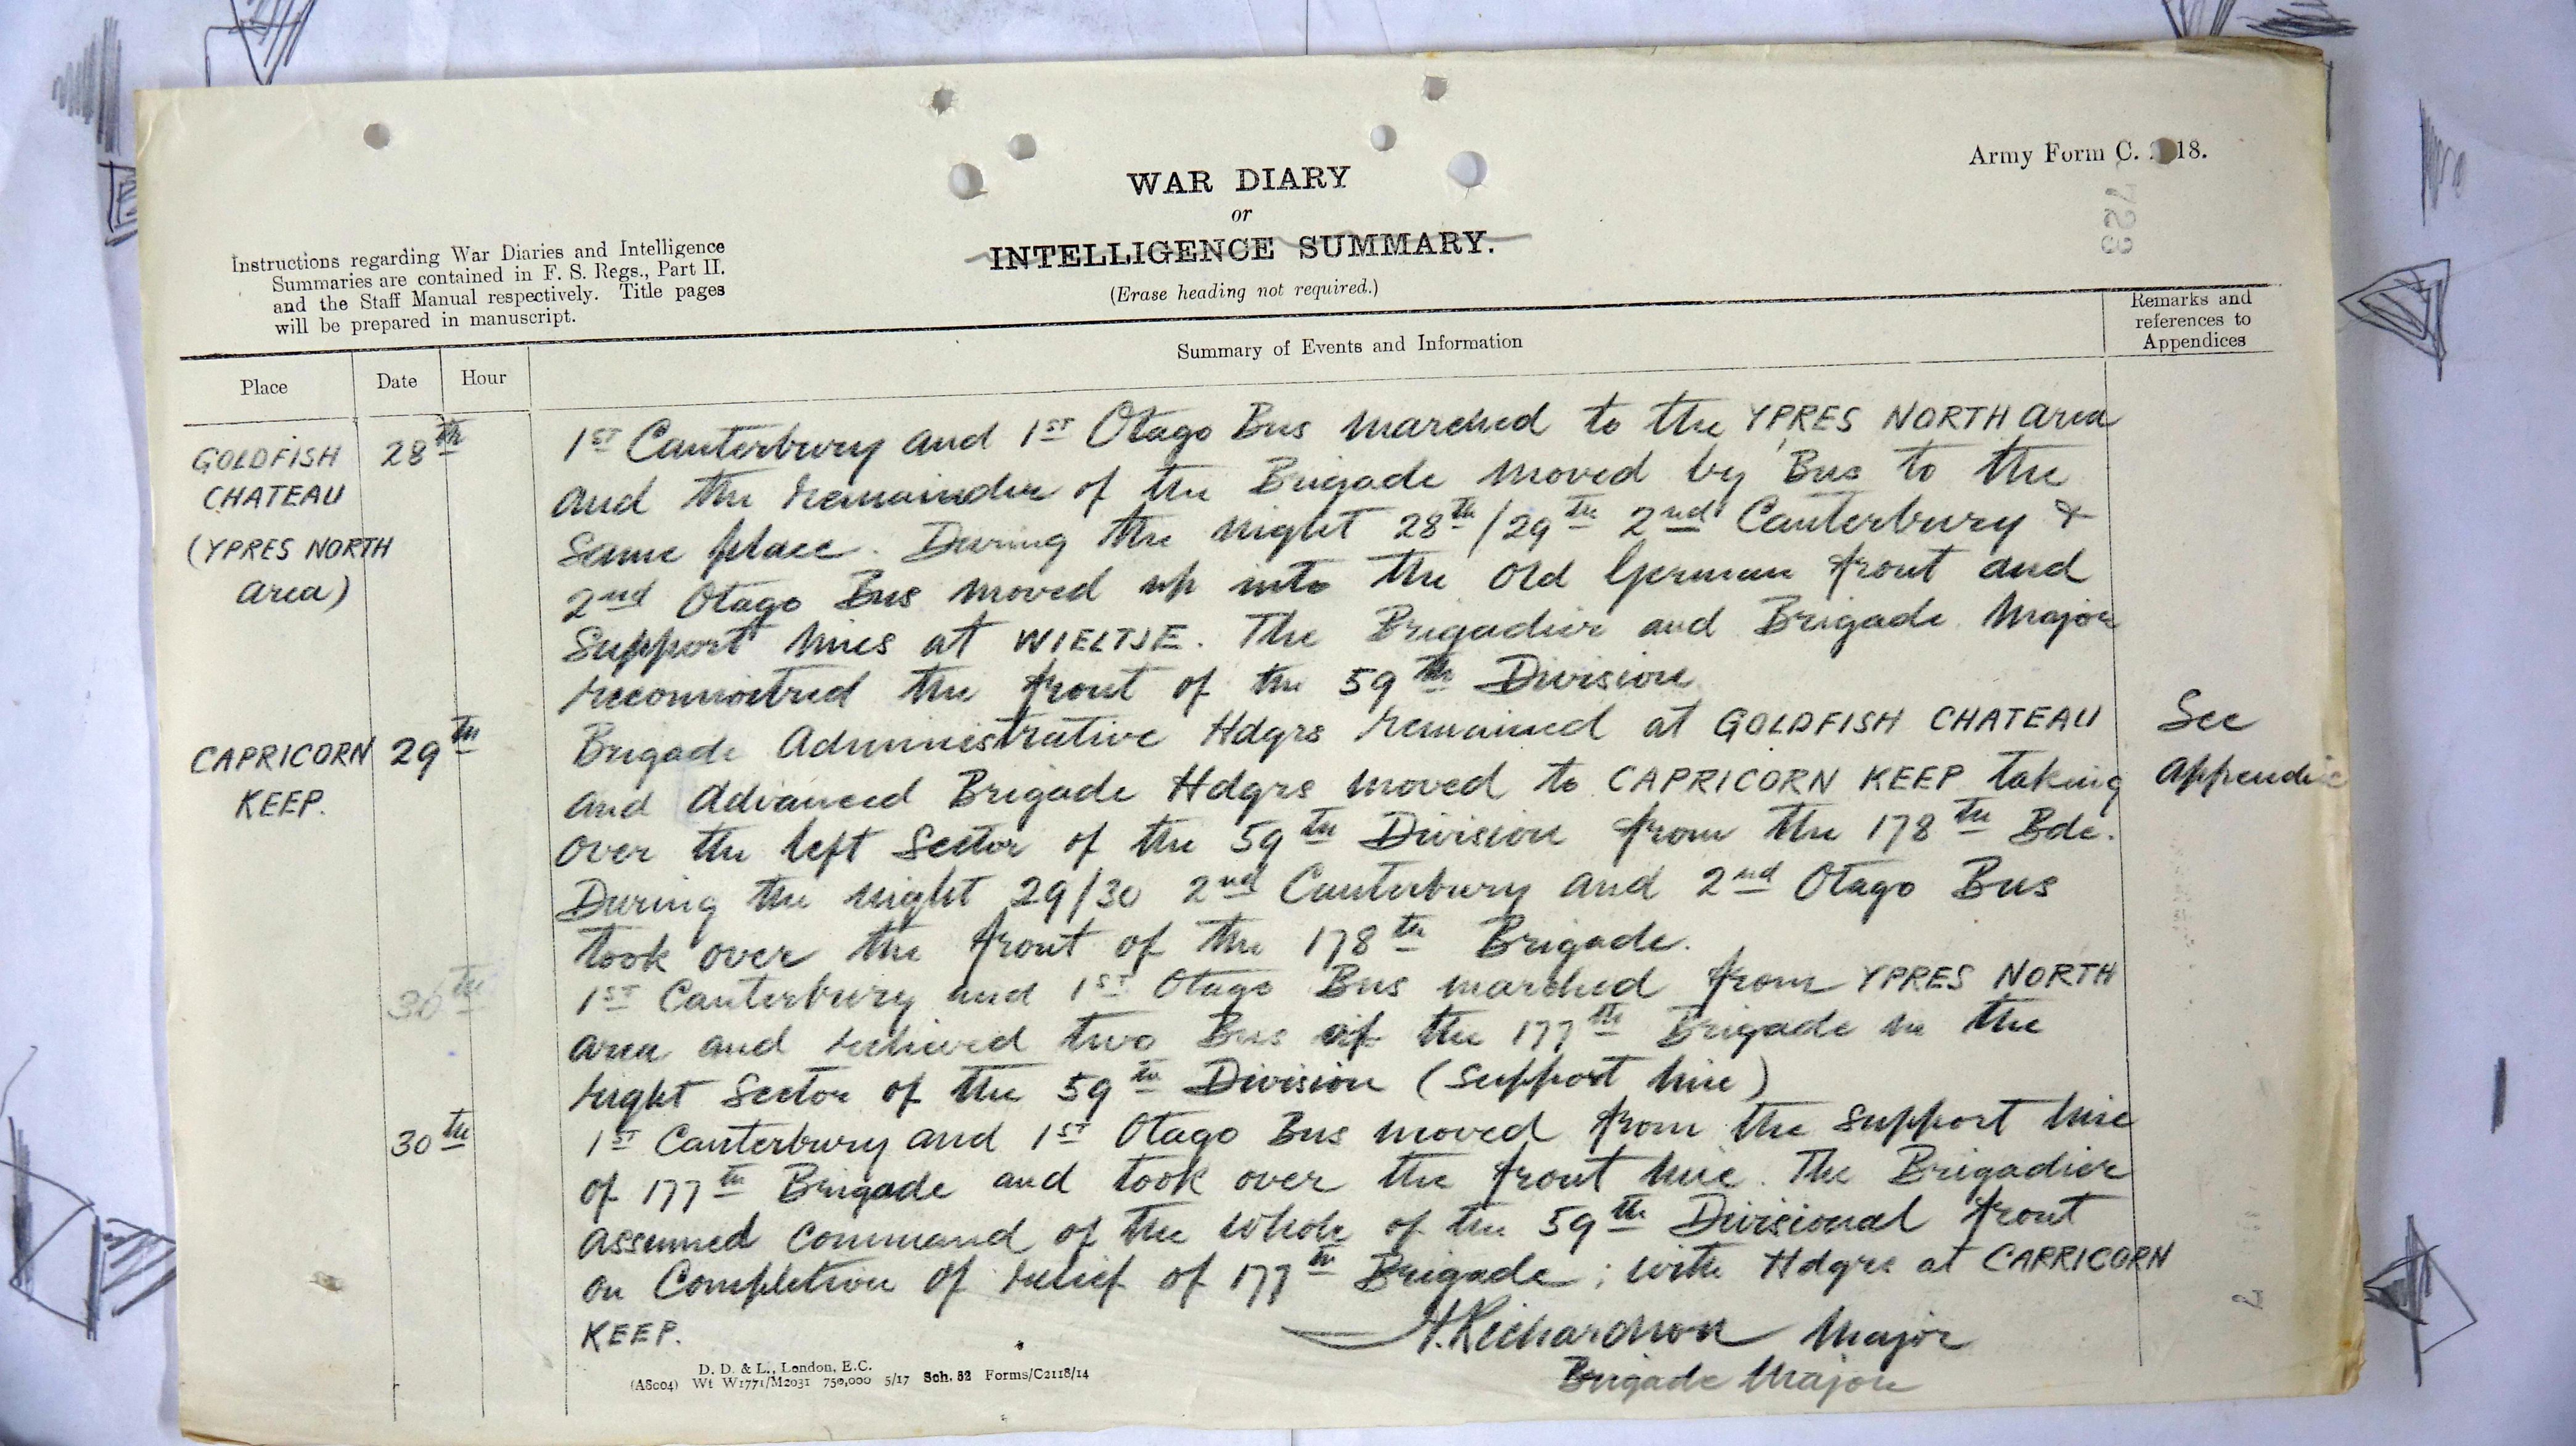 Army Form C. 2118.
WAR DIARY
or
INTELLIGENCE SUMMARY.
(Erase heading not required.)
Instructions regarding War Diaries and Intelligence
Summaries are contained in F. S. Regs., Part II.
and the Staff Manual respectively. Title pages
will be prepared in manuscript.
Place Date Hour Summary of Events and Information Remarks and references to Appendices
GOLDFISH CHATEAU (YPRES NORTH area) 28th
1st Canterbury and 1st Otago Bns marched to the YPRES NORTH area
and the remainder of the Brigade moved by Bus to the
same place. During the night 28th/29th 2nd Canterbury &
2nd Otago Bns moved up into the old German front and
support lines at WIELTJE. The Brigadier and Brigade Major
reconnoitred the front of the 59th Division
CAPRICORN KEEP. 29th
Brigade Administrative Hdqrs remained at GOLDFISH CHATEAU See
and Advanced Brigade Hdqrs moved to CAPRICORN KEEP taking
over the left Sector of the 59th Division from the 178th Bde.
During the night 29/30 2nd Canterbury and 2nd Otago Bns
took over the front of the 178th Brigade.
30th
1st Canterbury and 1st Otago Bns marched from YPRES NORTH
area and relieved two Bns of the 177th Brigade in the
right Sector of the 59th Division (support line)
30th
1st Canterbury and 1st Otago Bns moved from the support line
of 177th Brigade and took over the front line. The Brigadier
assumed command of the whole of the 59th Divisional front
on completion of relief of 177th Brigade; with Hdqrs at CAPRICORN
KEEP.
H. Richardson Major
Brigade Major
D. D. & L., London, E.C.
(A8004) Wt W1771/M2031 750,000 5/17 Sch. 52 Forms/C2118/14